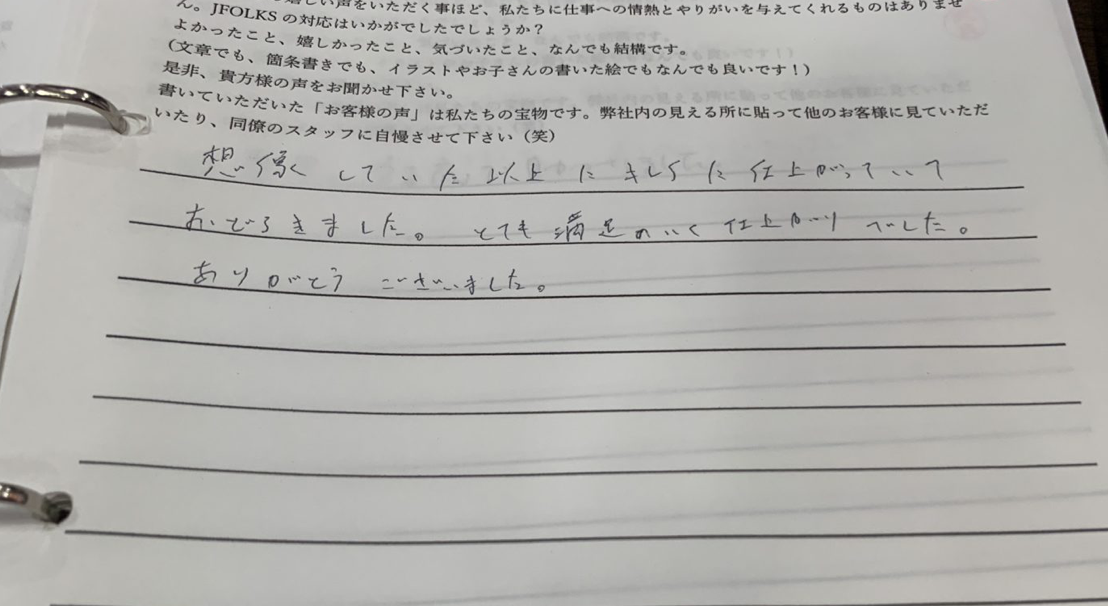 嬉しい声をいただく事ほど、私たちに仕事への情熱とやりがいを与えてくれるものはありませ
ん。JFOLKSの対応はいかがでしたでしょうか？
よかったこと、嬉しかったこと、気づいたこと、なんでも結構です。
（文章でも、箇条書きでも、イラストやお子さんの書いた絵でもなんでも良いです！）
是非、貴方様の声をお聞かせ下さい。
書いていただいた「お客様の声」は私たちの宝物です。弊社内の見える所に貼って他のお客様に見ていただ
いたり、同僚のスタッフに自慢させて下さい（笑）
想像していた以上にキレイに仕上がっていて
おどろきました。とても満足のいく仕上がりでした。
ありがとうございました。